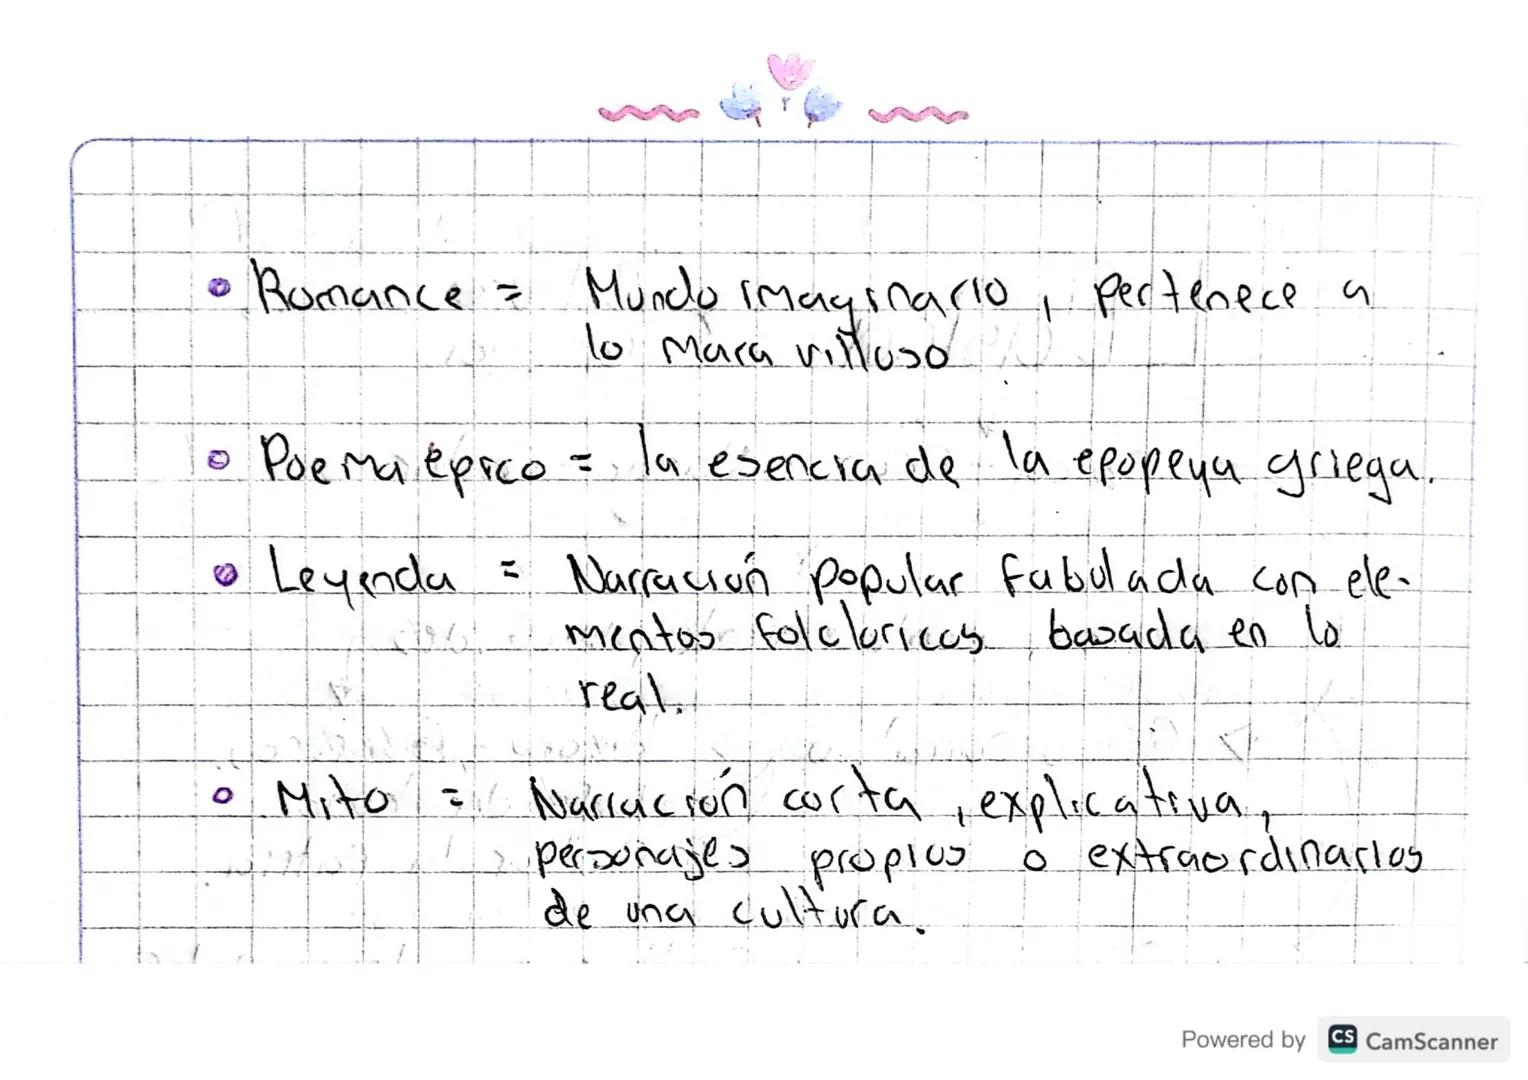 • Romance = Mundo imaginario, pertenece a
lo maravilluso
• Poema épico = la esencia de la epopeya griega.
• Leyenda = Narración popular fabulada con ele-
mentos folcloricos basada en lo
real.
• Mito = Narración corta, explicativa,
personajes propios o extraordinarios
de una cultura.
Powered by CS CamScanner